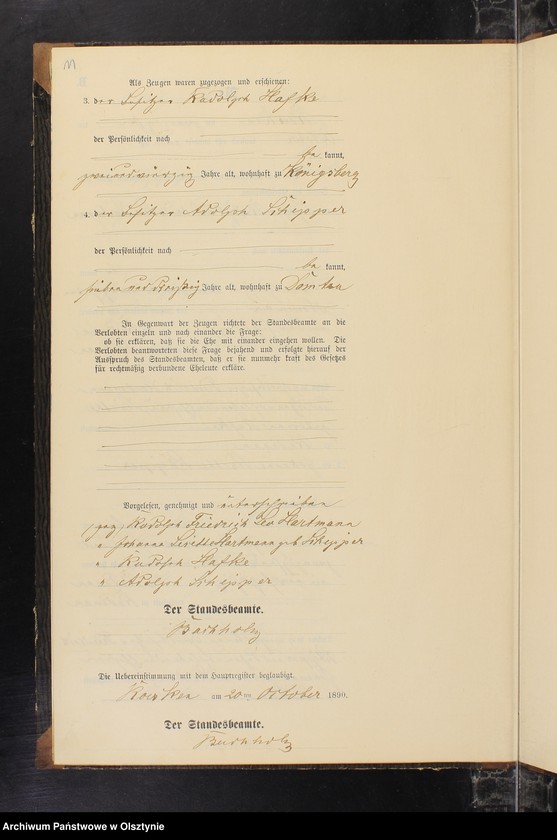 Als Zeugen waren zugezogen und erschienen:
3. der Besitzer Rudolph Hafke
der Persönlichkeit nach
be kannt,
zweiundvierzig Jahre alt, wohnhaft zu Königsberg
4. der Besitzer Adolph Schepper
der Persönlichkeit nach
be kannt,
sieben und dreißig Jahre alt, wohnhaft zu Domtau
In Gegenwart der Zeugen richtete der Standesbeamte an die
Verlobten einzeln und nach einander die Frage:
ob sie erklären, daß sie die Ehe mit einander eingehen wollen. Die
Verlobten beantworteten diese Frage bejahend und erfolgte hierauf der
Ausspruch des Standesbeamten, daß er sie nunmehr kraft des Gesetzes
für rechtmäßig verbundene Eheleute erkläre.
Vorgelesen, genehmigt und unterschrieben
gez. Rudolph Friedrich Leo Hartmann
" Johanna Hartmann geb. Schepper
" Rudolph Hafke
" Adolph Schepper
Der Standesbeamte.
Buchholz
Die Uebereinstimmung mit dem Hauptregister beglaubigt.
am 20ten October 1890.
Der Standesbeamte.
Buchholz
Archiwum Państwowe w Olsztynie